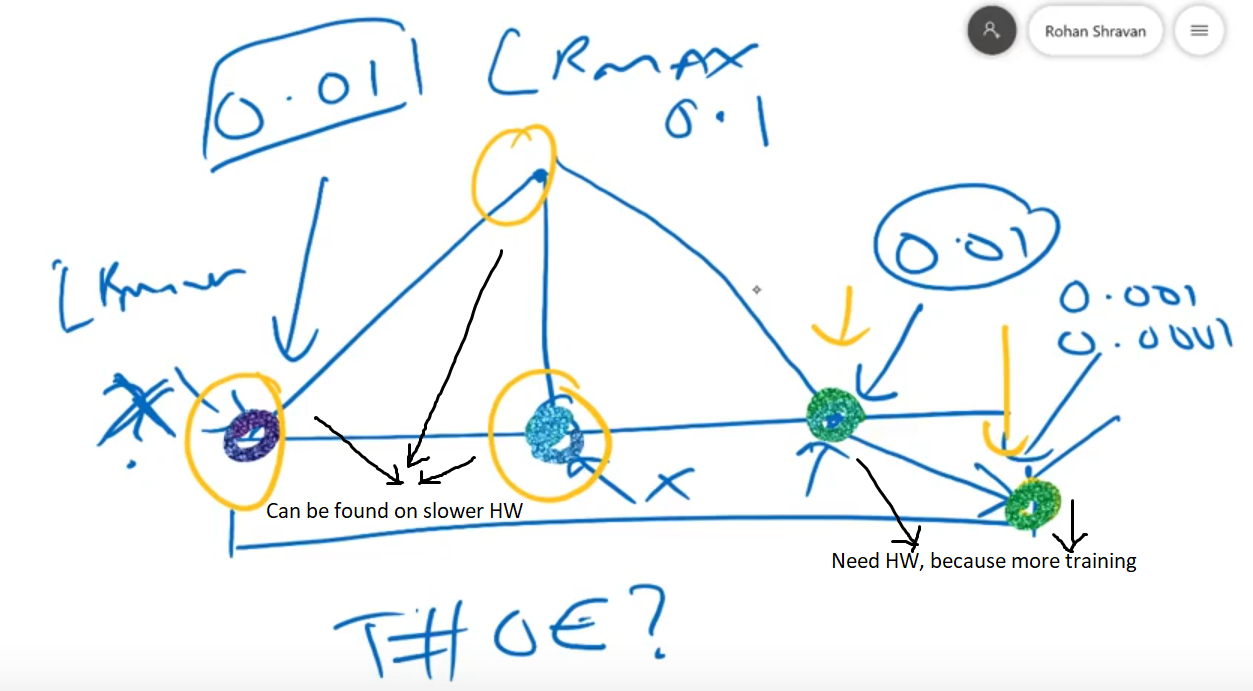 Rohan Shravan
0.01
LRMAX
0.1
LRMIN
0.01
0.001
0.0001
X
Can be found on slower HW
Need HW, because more training
T# OE?